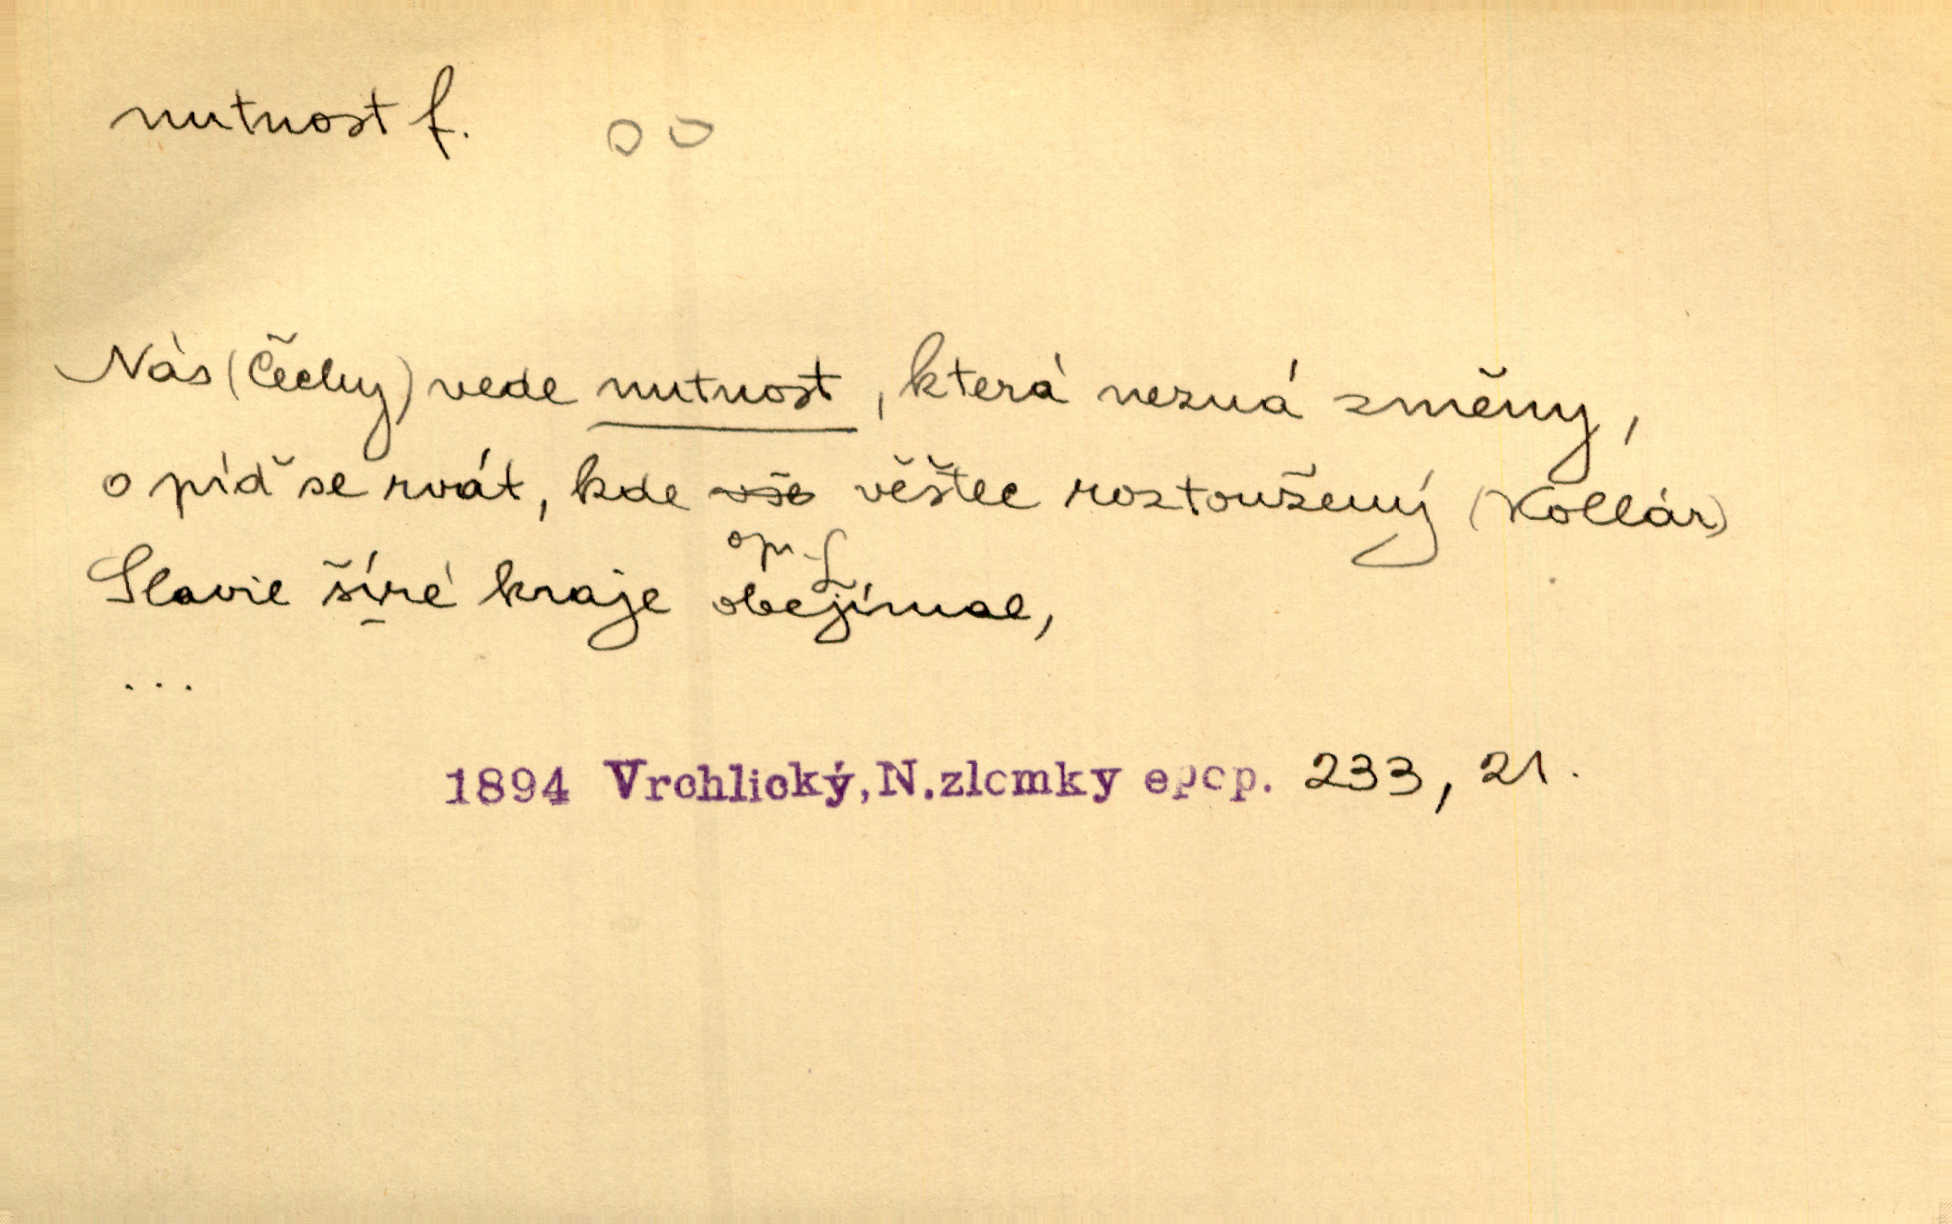 nutnost f.
Nás (Čechy) vede nutnost, která nezná změny,
o píď se rvát, kde vše věštec roztoužený (Kollár)
opr.
Slavie šíré kraje obejímal,
...
1894 Vrchlický, N.zlomky epop. 233, 21.